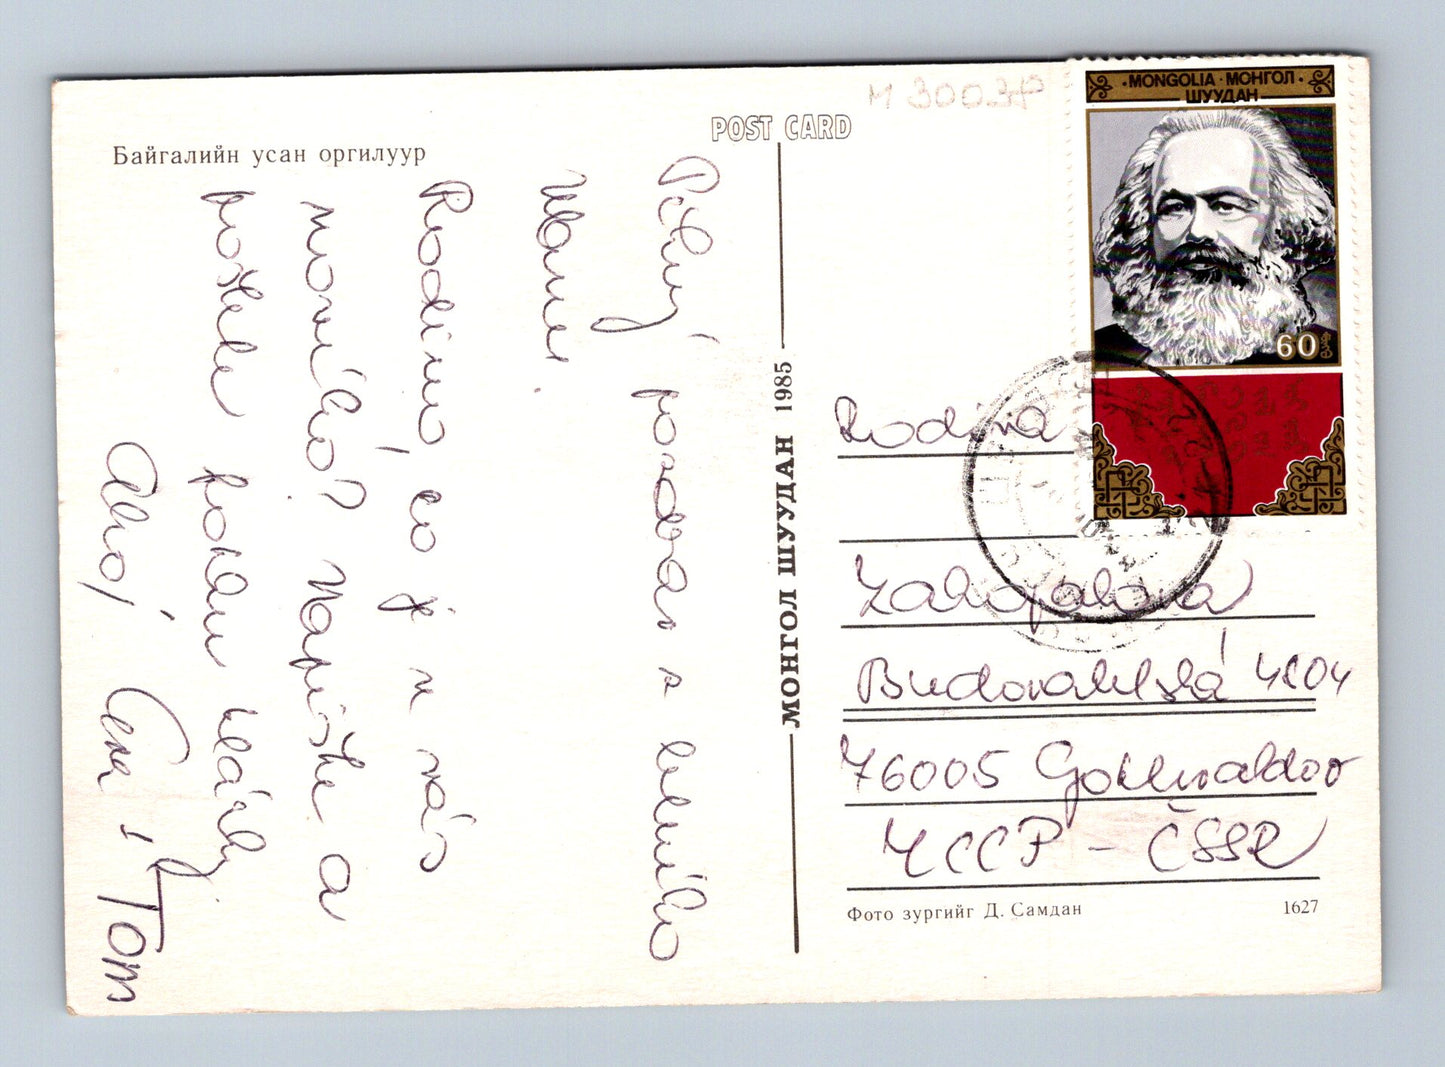 м 3003р
POST CARD
Байгалийн усан оргилуур
Pěkný pozdrav z daleného
Ulanu.
Rodino, co je u vás
nového? Napište a
pošlete
Ahoj! a Tom
МОНГОЛ ШУУДАН 1985
· MONGOLIA · МОНГОЛ ·
ШУУДАН
60
Rodina
Zahopalova
Budovatelská 4804
76005 Gottwaldov
ЧССР - ČSSR
Фото зургийг Д. Самдан
1627